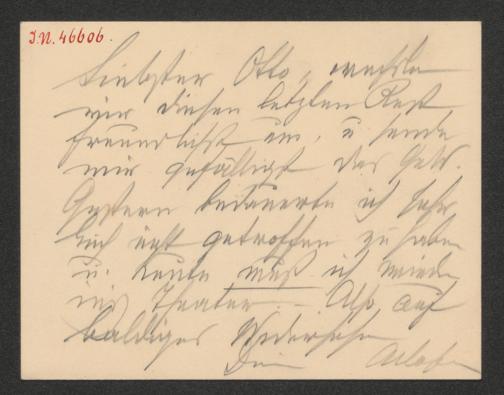 I.N. 46606.
Liebster Otto, wechsle
mir diesen letzten Rest
freundlichst um, u sende
mir gefälligst das Geld.
Gestern bedauerte ich sehr
Dich nicht getroffen zu haben
u. heute muß ich wieder
ins Theater. – Also auf
baldiges Wiedersehen
Dein